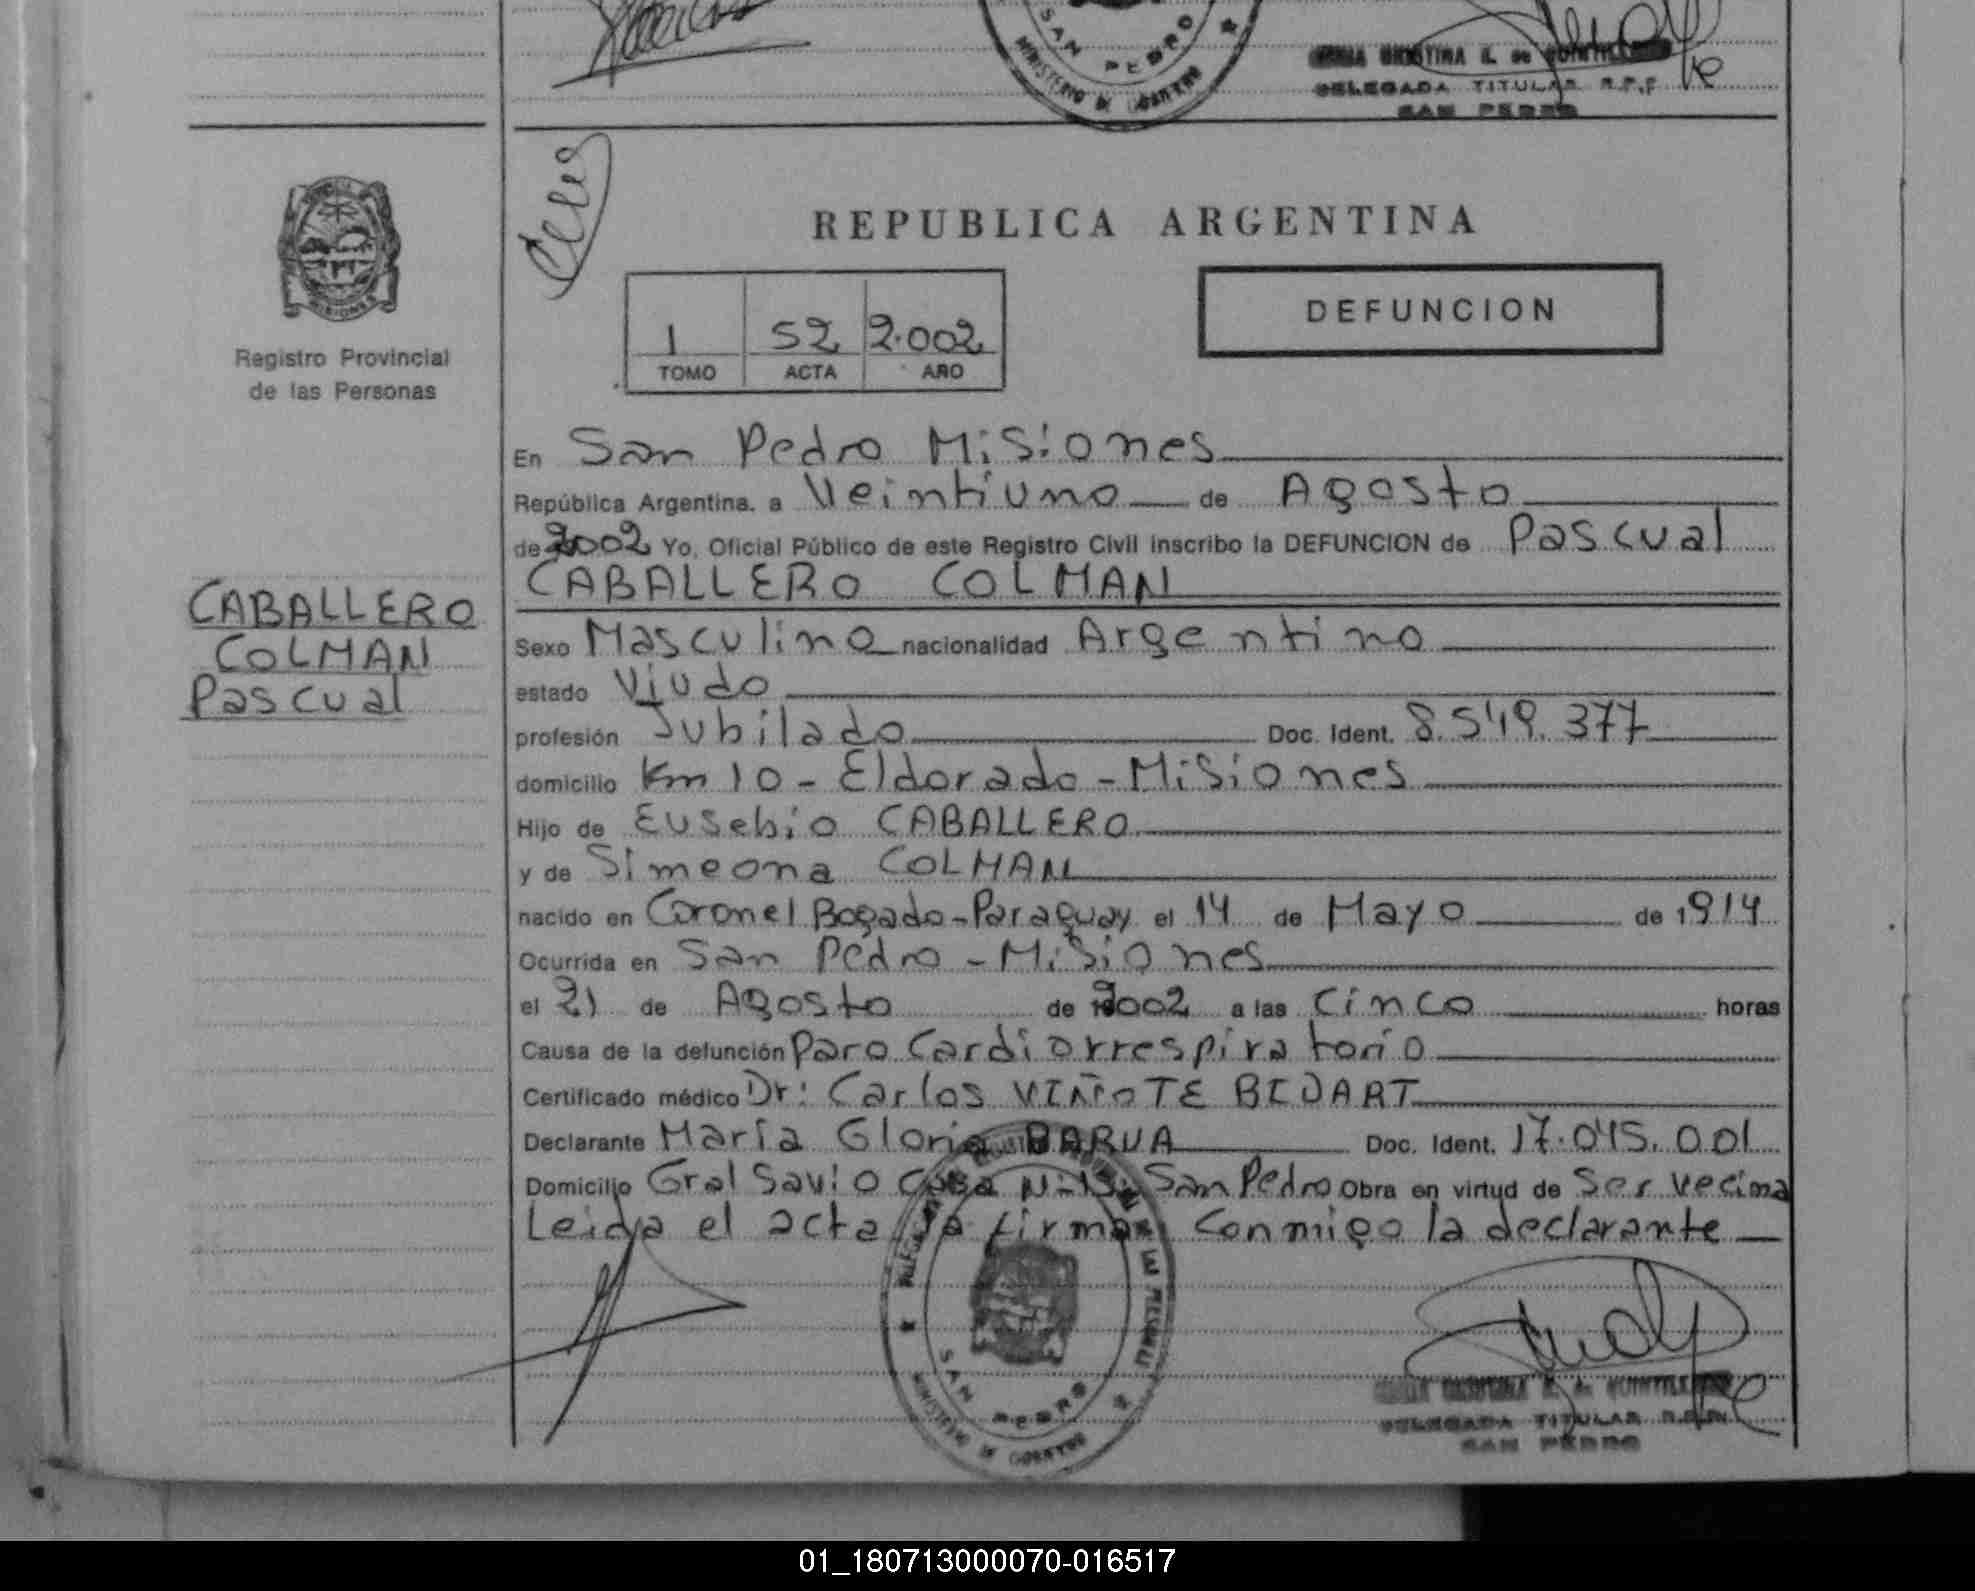 SAN PEDRO
MINISTERIO DE GOBIERNO
DELEGADA TITULAR R.P.P.
SAN PEDRO
REPUBLICA ARGENTINA
1 52 2.002
TOMO ACTA AÑO
DEFUNCION
Registro Provincial
de las Personas
CABALLERO
COLMAN
Pascual
En San Pedro Misiones
República Argentina, a Veintiuno de Agosto
de 2002 Yo, Oficial Público de este Registro Civil inscribo la DEFUNCION de Pascual
CABALLERO COLMAN
Sexo Masculino nacionalidad Argentino
estado Viudo
profesión Jubilado Doc. Ident. 8.549.377
domicilio Km 10 - Eldorado - Misiones
Hijo de Eusebio CABALLERO
y de Simeona COLMAN
nacido en Coronel Bogado - Paraguay el 14 de Mayo de 1914
Ocurrida en San Pedro - Misiones
el 21 de Agosto de 2002 a las Cinco horas
Causa de la defunción Paro Cardiorrespiratorio
Certificado médico Dr: Carlos VIÑOTE BIDART
Declarante María Gloria BARUA Doc. Ident. 17.045.001
Domicilio Gral Savio Casa N-13 San Pedro Obra en virtud de Ser vecina
Leida el acta la firman conmigo la declarante
SAN PEDRO
MINISTERIO DE GOBIERNO
DELEGADA TITULAR R.P.P.
SAN PEDRO
01_180713000070-016517